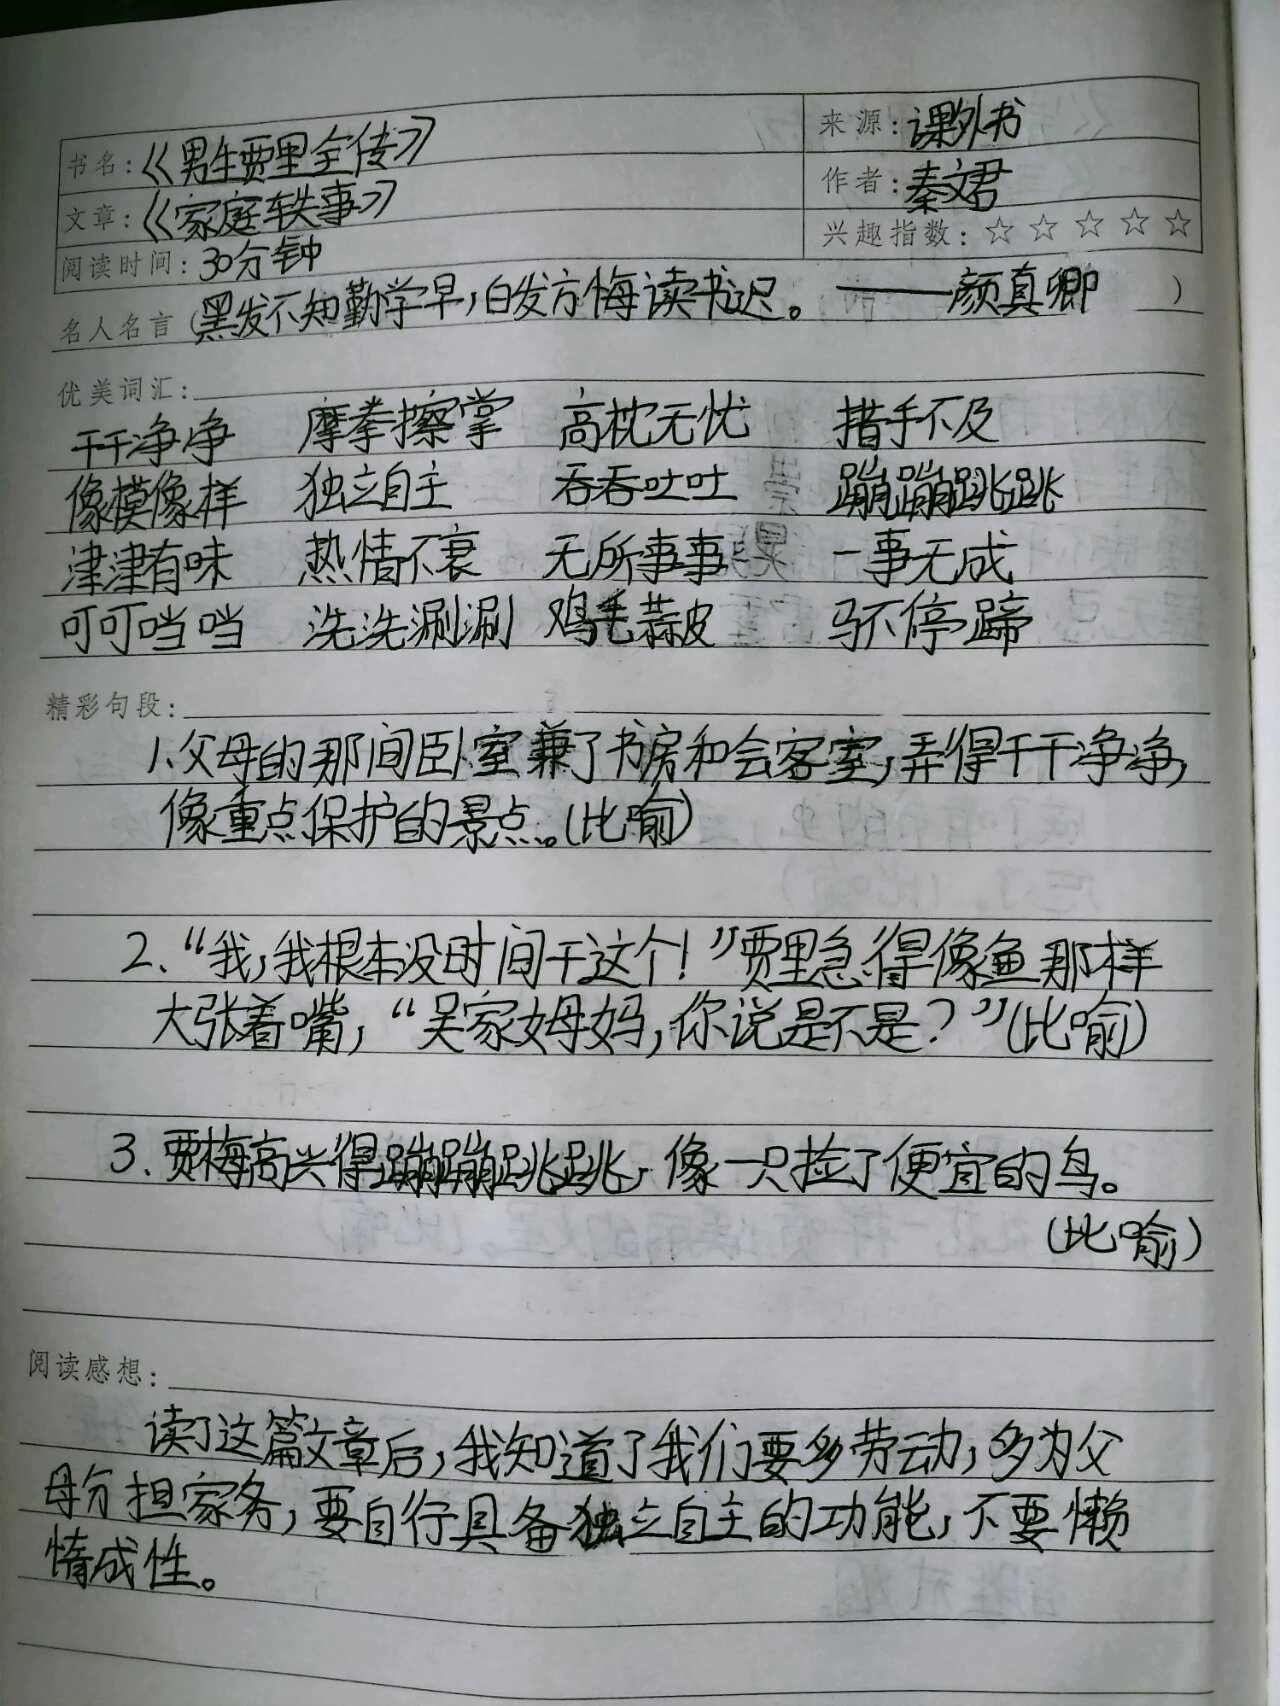 书名：《男生贾里全传》
来源：课外书
文章：《家庭轶事》
作者：秦文君
阅读时间：30分钟
兴趣指数：☆☆☆☆☆
名人名言（黑发不知勤学早，白发方悔读书迟。——颜真卿）
优美词汇：
干干净净 摩拳擦掌 高枕无忧 措手不及
像模像样 独立自主 吞吞吐吐 蹦蹦跳跳
津津有味 热情不衰 无所事事 一事无成
叮叮当当 洗洗涮涮 鸡毛蒜皮 马不停蹄
精彩句段：
1、父母的那间卧室兼了书房和会客室，弄得干干净净，
像重点保护的景点。（比喻）
2、“我，我根本没时间干这个！”贾里急得像鱼那样
大张着嘴，“吴家姆妈，你说是不是？”（比喻）
3、贾梅高兴得蹦蹦跳跳，像一只捡了便宜的鸟。
（比喻）
阅读感想：
读了这篇文章后，我知道了我们要多劳动，多为父
母分担家务，要自行具备独立自主的功能，不要懒
惰成性。